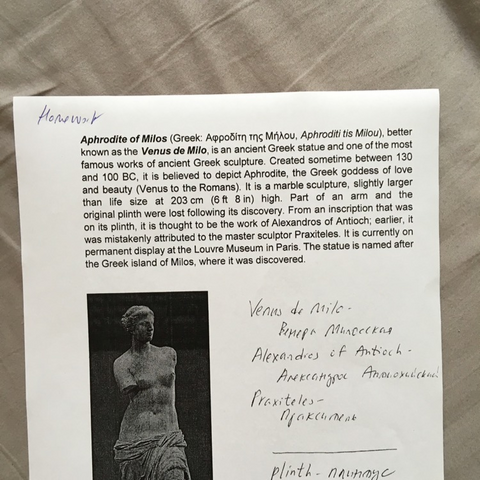 Homework
Aphrodite of Milos (Greek: Αφροδίτη της Μήλου, Aphroditi tis Milou), better
known as the Venus de Milo, is an ancient Greek statue and one of the most
famous works of ancient Greek sculpture. Created sometime between 130
and 100 BC, it is believed to depict Aphrodite, the Greek goddess of love
and beauty (Venus to the Romans). It is a marble sculpture, slightly larger
than life size at 203 cm (6 ft 8 in) high. Part of an arm and the
original plinth were lost following its discovery. From an inscription that was
on its plinth, it is thought to be the work of Alexandros of Antioch; earlier, it
was mistakenly attributed to the master sculptor Praxiteles. It is currently on
permanent display at the Louvre Museum in Paris. The statue is named after
the Greek island of Milos, where it was discovered.
Venus de Milo -
Венера Милосская
Alexandros of Antioch -
Александрос Антиохийский
Praxiteles -
Пракситель
plinth - плинтус